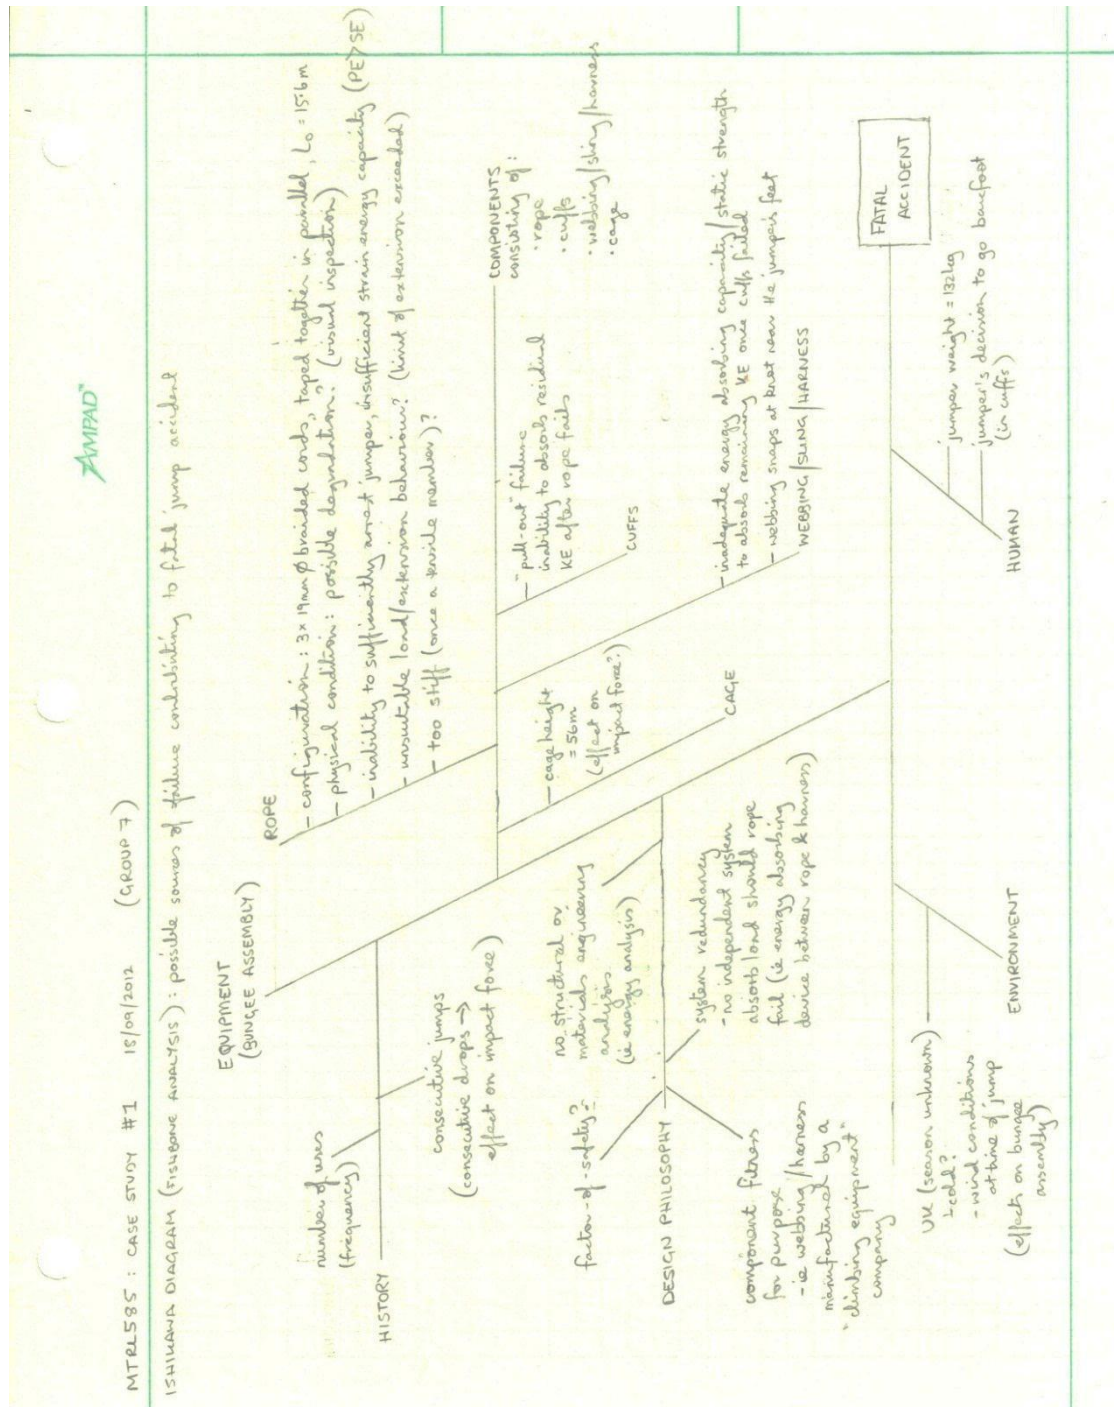 AMPAD™
MTRL585 : CASE STUDY #1 18/09/2012 (GROUP 7)
ISHIKAWA DIAGRAM (FISHBONE ANALYSIS) : possible sources of failure contributing to fatal jump accident
EQUIPMENT
(BUNGEE ASSEMBLY)
ROPE
- configuration : 3 x 19mm ø braided cords, taped together in parallel, L₀ = 15.6m
- physical condition : possible degradation? (visual inspection)
- inability to sufficiently arrest jumper, insufficient strain energy capacity (PE>SE)
- unsuitable load/extension behaviour? (limit of extension exceeded)
- too stiff (once a tensile member)?
number of uses
(frequency)
HISTORY
consecutive jumps
(consecutive drops →
effect on impact force)
COMPONENTS
consisting of :
· rope
· cuffs
· webbing/sling/harness
· cage
- "pull-out" failure
inability to absorb residual
KE after rope fails
CUFFS
- cage height
= 56m
(effect on
impact force?)
CAGE
- inadequate energy absorbing capacity/static strength
to absorb remaining KE once cuffs failed
- webbing snaps at knot near the jumper's feet
WEBBING/SLING/HARNESS
factor-of-safety?
no structural or
materials engineering
analysis
(ie energy analysis)
DESIGN PHILOSOPHY
system redundancy
- no independent system
absorb load should rope
fail (ie energy absorbing
device between rope & harness)
component fitness
for purpose
- ie webbing/harness
manufactured by a
"climbing equipment"
company
FATAL
ACCIDENT
UK (season unknown)
cold?
- wind conditions
at time of jump
(effect on bungee
assembly)
ENVIRONMENT
jumper weight = 132kg
jumper's decision to go barefoot
(in cuffs)
HUMAN